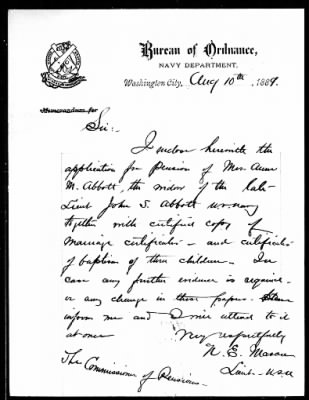 Bureau of Ordnance,
NAVY DEPARTMENT,
Washington City, Aug 10th, 1889.
Memorandum for
Sir:-
I inclose herewith the
application for Pension of Mrs. Anna
M. Abbott, the widow of the late
Lieut John S. Abbott U.S. Navy
together with certified copy of
marriage certificate - and certificate
of baptism of three children. In
case any further evidence is required
or any change in these papers. Please
inform me and I will attend to it
at once
Very respectfully
N. E. Mason
Lieut- USN
The Commissioner of Pensions.